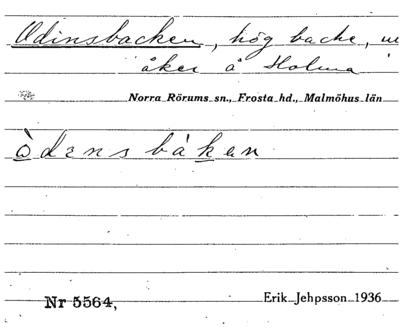 Odinsbacken, hög backe, nu
åker å Holma
Norra Rörums sn., Frosta hd., Malmöhus län
ò̱dɛns bàḵen
Nr 5564,
Erik Jehpsson 1936